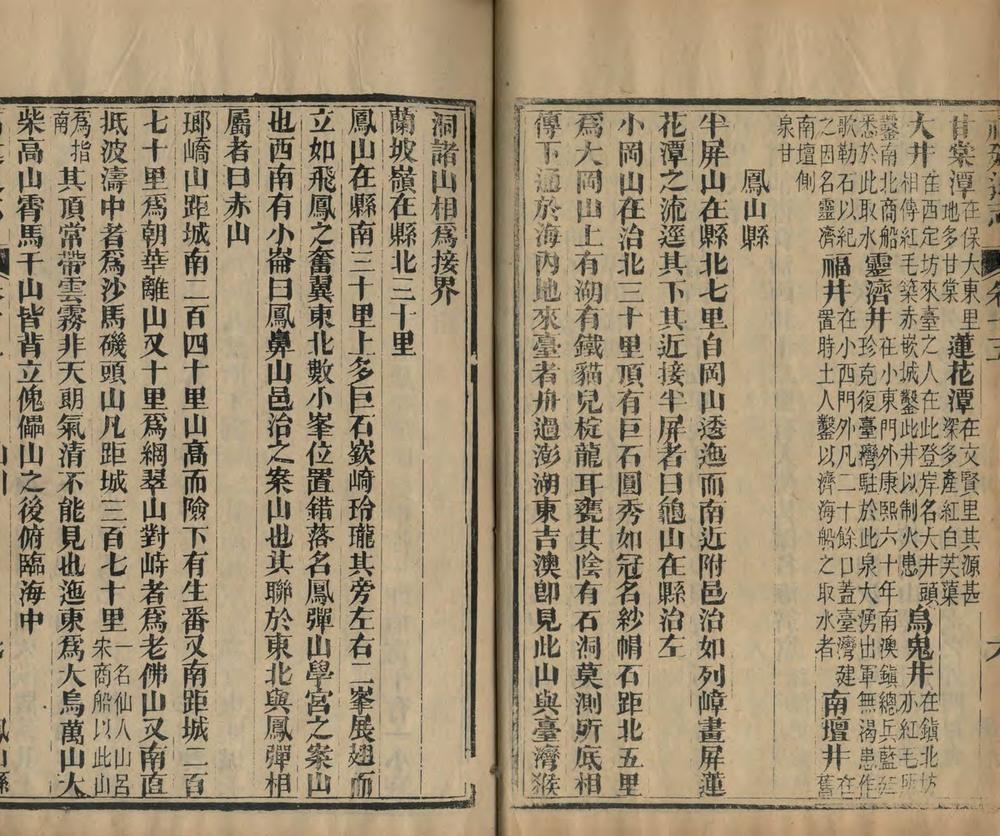 甘棠潭在保大東里地多甘棠蓮花潭在文賢里其源甚深多產紅白芙蕖
大井在西定坊來臺之人在此登岸名大井頭相傳紅毛築赤嵌城鑿此井以制火患烏鬼井在鎮北坊亦紅毛所
鑿南北商船悉於此取水靈濟井在小東門外康熙六十年南澳鎮總兵藍廷珍克復臺灣駐於此泉大湧出軍無渴患作
歌勒石以紀之因名靈濟福井在小西門外凡二十餘口蓋臺灣建置時土人鑿以濟海船之取水者南壇井在舊
南壇側泉甘
鳳山縣
半屏山在縣北七里自岡山透迤而南近附邑治如列嶂畫屏蓮
花潭之流逕其下其近接半屏者曰龜山在縣治左
小岡山在治北三十里頂有巨石圓秀如冠名紗帽石距北五里
爲大岡山上有湖有鐵貓兒椗龍耳甕其陰有石洞莫測所底相
傳下通於海內地來臺者舟過澎湖東吉澳卽見此山與臺灣猴
洞諸山相爲接界
蘭坡嶺在縣北三十里
鳳山在縣南三十里上多巨石嶔崎玲瓏其旁左右二峯展翅而
立如飛鳳之奮翼東北數小峯位置錯落名鳳彈山學宮之案山
也西南有小崙曰鳳鼻山邑治之案山也其聯於東北與鳳彈相
屬者曰赤山
瑯嶠山距城南二百四十里山高而險下有生番又南距城二百
七十里爲朝華離山又十里爲網翠山對峙者爲老佛山又南直
抵波濤中者爲沙馬磯頭山凡距城三百七十里一名仙人山呂宋商船以此山
爲指南其頂常帶雲霧非天朗氣清不能見也迤東爲大烏萬山大
柴高山霄馬干山皆背立傀儡山之後俯臨海中